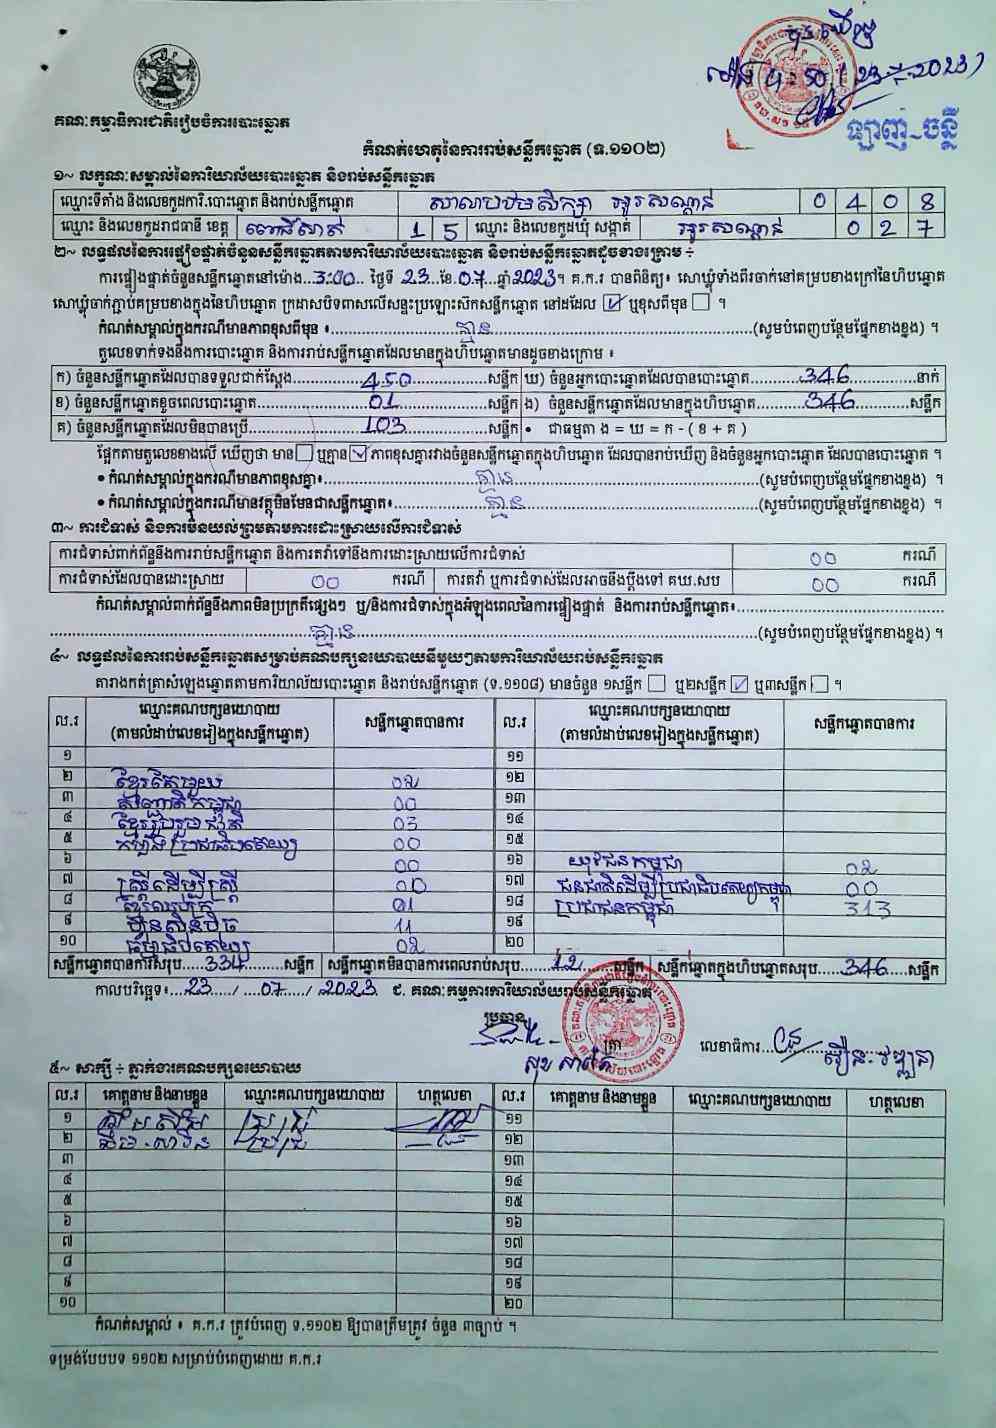 ម៉ោង 4:50 (23-7-2023)
ឡាញ់-ចន្ធី
គណៈកម្មាធិការជាតិរៀបចំការបោះឆ្នោត
កំណត់ហេតុនៃការរាប់សន្លឹកឆ្នោត (ទ.១១០២)
១~ លក្ខណៈសម្គាល់នៃការិយាល័យបោះឆ្នោត និងរាប់សន្លឹកឆ្នោត
ឈ្មោះទីតាំង និងលេខកូដការិ.បោះឆ្នោត និងរាប់សន្លឹកឆ្នោត សាលាបឋមសិក្សា អូរសណ្តាន់ 0 4 0 8
ឈ្មោះ និងលេខកូដរាជធានី ខេត្ត ពោធិ៍សាត់ 1 5 ឈ្មោះ និងលេខកូដឃុំ សង្កាត់ អូរសណ្តាន់ 0 2 7
២~ លទ្ធផលនៃការផ្ទៀងផ្ទាត់ចំនួនសន្លឹកឆ្នោតតាមការិយាល័យបោះឆ្នោត និងរាប់សន្លឹកឆ្នោតដូចខាងក្រោម ÷
ការផ្ទៀងផ្ទាត់ចំនួនសន្លឹកឆ្នោតនៅម៉ោង...3:00... ថ្ងៃទី 23 ..ខែ.07...ឆ្នាំ2023។ គ.ក.រ បានពិនិត្យ៖ សោឃ្លុំទាំងពីរចាក់នៅគម្របខាងក្រៅនៃហិបឆ្នោត
សោឃ្លុំចាក់ភ្ជាប់គម្របខាងក្នុងនៃហិបឆ្នោត ក្រដាសបិទពាសលើសន្ទះប្រឡោះស៊កសន្លឹកឆ្នោត នៅដដែល ☑ ឬខុសពីមុន ☐ ។
កំណត់សម្គាល់ក្នុងករណីមានភាពខុសពីមុន ៖.......គ្មាន.......(សូមបំពេញបន្ថែមផ្នែកខាងខ្នង) ។
តួលេខទាក់ទងនឹងការបោះឆ្នោត និងការរាប់សន្លឹកឆ្នោតដែលមានក្នុងហិបឆ្នោតមានដូចខាងក្រោម ៖
ក) ចំនួនសន្លឹកឆ្នោតដែលបានទទួលជាក់ស្តែង.......450.......សន្លឹក ឃ) ចំនួនអ្នកបោះឆ្នោតដែលបានបោះឆ្នោត.......346.......នាក់
ខ) ចំនួនសន្លឹកឆ្នោតខូចពេលបោះឆ្នោត.......01.......សន្លឹក ង) ចំនួនសន្លឹកឆ្នោតដែលមានក្នុងហិបឆ្នោត.......346.......សន្លឹក
គ) ចំនួនសន្លឹកឆ្នោតដែលមិនបានប្រើ.......103.......សន្លឹក • ជាធម្មតា ង = ឃ = ក - ( ខ + គ )
ផ្អែកតាមតួលេខខាងលើ ឃើញថា មាន ☐ ឬគ្មាន ☑ ភាពខុសគ្នារវាងចំនួនសន្លឹកឆ្នោតក្នុងហិបឆ្នោត ដែលបានរាប់ឃើញ និងចំនួនអ្នកបោះឆ្នោត ដែលបានបោះឆ្នោត ។
• កំណត់សម្គាល់ក្នុងករណីមានភាពខុសគ្នា៖.......គ្មាន.......(សូមបំពេញបន្ថែមផ្នែកខាងខ្នង) ។
• កំណត់សម្គាល់ក្នុងករណីមានវត្ថុមិនមែនជាសន្លឹកឆ្នោត៖.......គ្មាន.......(សូមបំពេញបន្ថែមផ្នែកខាងខ្នង) ។
៣~ ការជំទាស់ និងការមិនយល់ព្រមតាមការដោះស្រាយលើការជំទាស់
ការជំទាស់ពាក់ព័ន្ធនឹងការរាប់សន្លឹកឆ្នោត និងការតវ៉ាទៅនឹងការដោះស្រាយលើការជំទាស់ 00 ករណី
ការជំទាស់ដែលបានដោះស្រាយ 00 ករណី ការតវ៉ា ឬការជំទាស់ដែលអាចនឹងប្តឹងទៅ គឃ.សប 00 ករណី
កំណត់សម្គាល់ពាក់ព័ន្ធនឹងភាពមិនប្រក្រតីផ្សេងៗ ឬ/និងការជំទាស់ក្នុងអំឡុងពេលនៃការផ្ទៀងផ្ទាត់ និងការរាប់សន្លឹកឆ្នោត៖.......
.......គ្មាន.......(សូមបំពេញបន្ថែមផ្នែកខាងខ្នង) ។
៤~ លទ្ធផលនៃការរាប់សន្លឹកឆ្នោតសម្រាប់គណបក្សនយោបាយនីមួយៗតាមការិយាល័យរាប់សន្លឹកឆ្នោត
តារាងកត់ត្រាសំឡេងឆ្នោតតាមការិយាល័យបោះឆ្នោត និងរាប់សន្លឹកឆ្នោត (ទ.១១០៨) មានចំនួន ១សន្លឹក ☐ ឬ២សន្លឹក ☑ ឬ៣សន្លឹក ☐ ។
ល.រ ឈ្មោះគណបក្សនយោបាយ (តាមលំដាប់លេខរៀងក្នុងសន្លឹកឆ្នោត) សន្លឹកឆ្នោតបានការ ល.រ ឈ្មោះគណបក្សនយោបាយ (តាមលំដាប់លេខរៀងក្នុងសន្លឹកឆ្នោត) សន្លឹកឆ្នោតបានការ
១ ១១
២ ខ្មែរតែមួយ 02 ១២
៣ សញ្ជាតិកម្ពុជា 00 ១៣
៤ ខ្មែររួបរួមជាតិ 03 ១៤
៥ កម្លាំងប្រជាធិបតេយ្យ 00 ១៥
៦ 00 ១៦ យុវជនកម្ពុជា 02
៧ ស្ត្រីដើម្បីស្ត្រី 00 ១៧ ជនជាតិដើម្បីប្រជាធិបតេយ្យកម្ពុជា 00
៨ 01 ១៨ ប្រជាជនកម្ពុជា 313
៩ ហ្វ៊ុនស៊ិនប៉ិច 11 ១៩
១០ ធម្មាធិបតេយ្យ 02 ២០
សន្លឹកឆ្នោតបានការសរុប.....334.....សន្លឹក សន្លឹកឆ្នោតមិនបានការពេលរាប់សរុប.....12.....សន្លឹក សន្លឹកឆ្នោតក្នុងហិបឆ្នោតសរុប.....346.....សន្លឹក
កាលបរិច្ឆេទ៖...23..../...07..../ 2023 ជ. គណៈកម្មការការិយាល័យរាប់សន្លឹកឆ្នោត
ប្រធាន
ត្រា
លេខាធិការ
៥~ សាក្សី ÷ ភ្នាក់ងារគណបក្សនយោបាយ
ល.រ គោត្តនាម និងនាមខ្លួន ឈ្មោះគណបក្សនយោបាយ ហត្ថលេខា ល.រ គោត្តនាម និងនាមខ្លួន ឈ្មោះគណបក្សនយោបាយ ហត្ថលេខា
១ ១១
២ ១២
៣ ១៣
៤ ១៤
៥ ១៥
៦ ១៦
៧ ១៧
៨ ១៨
៩ ១៩
១០ ២០
កំណត់សម្គាល់ ៖ គ.ក.រ ត្រូវបំពេញ ទ.១១០២ ឱ្យបានត្រឹមត្រូវ ចំនួន ៣ច្បាប់ ។
ទម្រង់បែបបទ ១១០២ សម្រាប់បំពេញដោយ គ.ក.រ